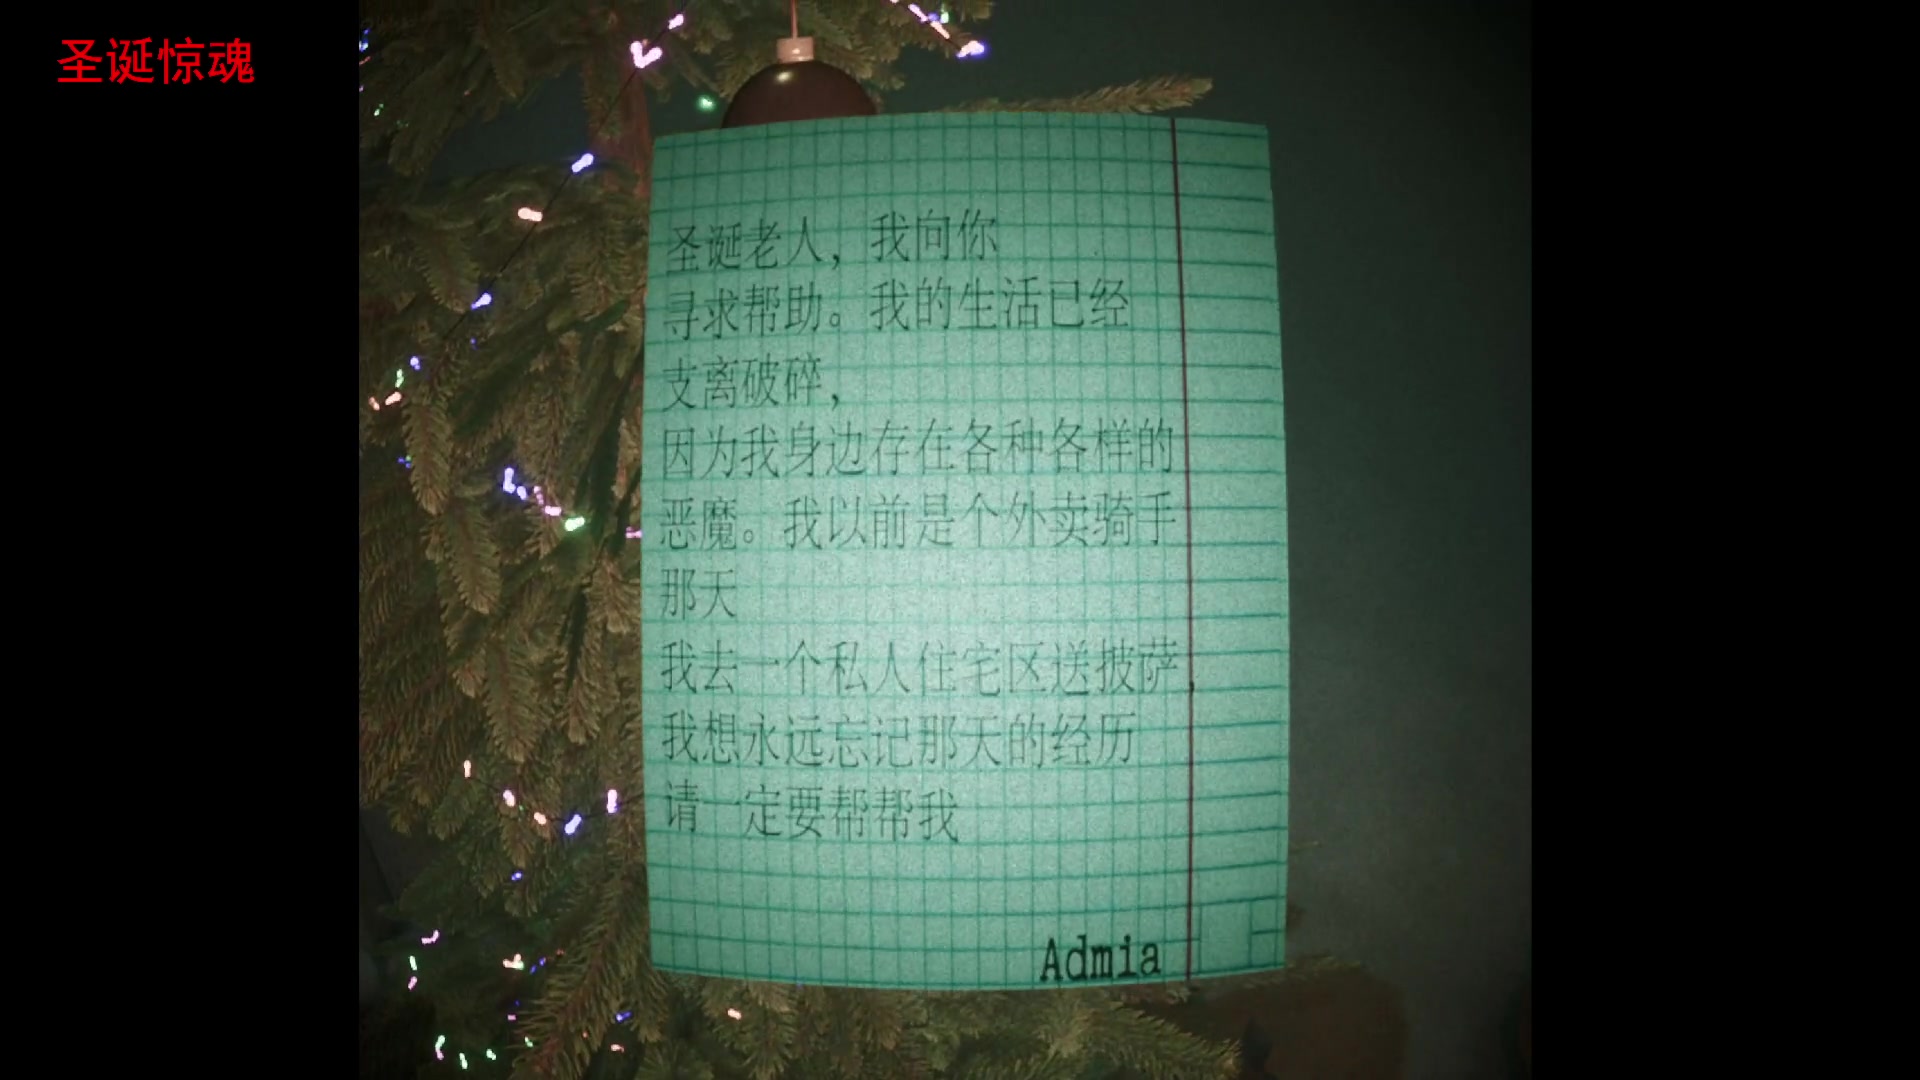 圣诞惊魂
圣诞老人，我向你
寻求帮助。我的生活已经
支离破碎，
因为我身边存在各种各样的
恶魔。我以前是个外卖骑手
那天
我去一个私人住宅区送披萨
我想永远忘记那天的经历
请一定要帮帮我
Admia